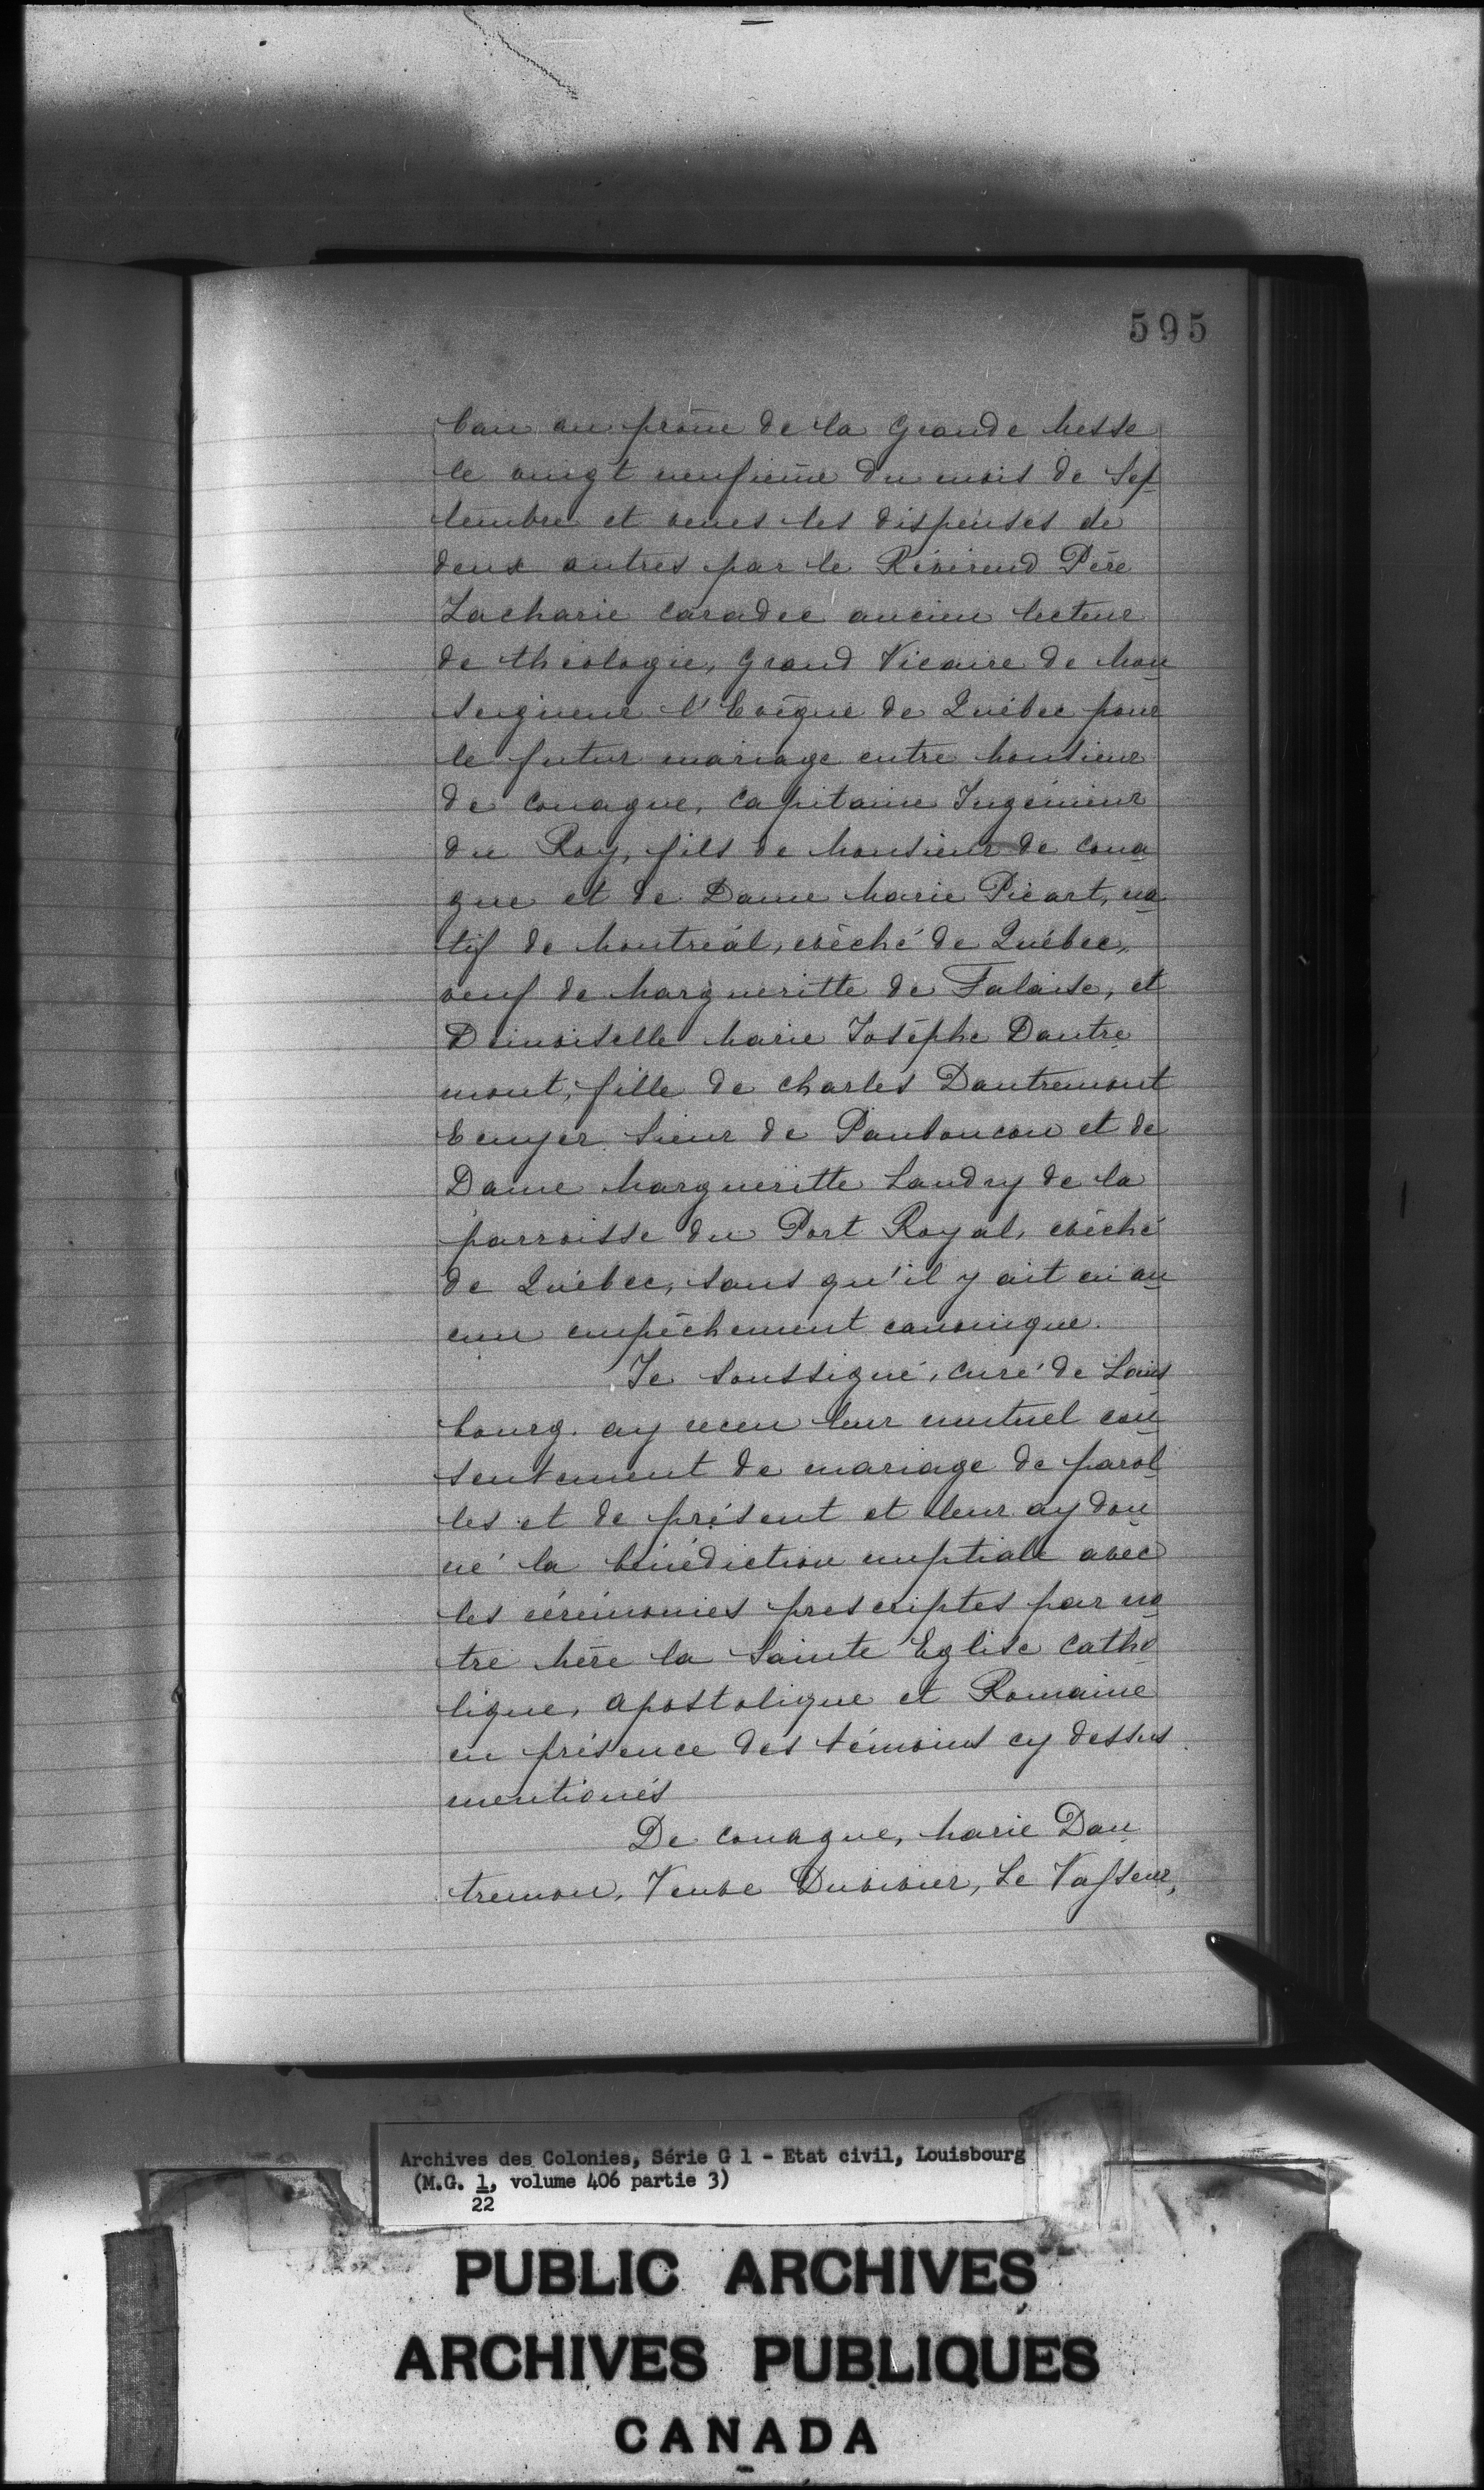 595
ban au prône de la Grande Messe
le vingt neufième du mois de Sep
tembre et venes les dispenses de
deux autres par le Révérend Père
Zacharie Caradec ancien lecteur
de théologie, Grand Vicaire de Mon
seigneur l'Evêque de Québec pour
le futur mariage entre Monsieur
de Couagne, Capitaine Ingénieur
du Roy, fils de Monsieur de Coua
gne et de Dame Marie Picart, na
tif de Montréal, évêché de Québec,
veuf de Margueritte de Falaise, et
Demoiselle Marie Josèphe Dautre
mont, fille de Charles Dautremont
Ecuyer Sieur de Panboucou et de
Dame Margueritte Landry de la
parroisse du Port Royal, évêché
de Québec, sans qu'il y ait eu au
cun empêchement canonique.
Je soussigné, curé de Louis
bourg. ay receu leur mutuel con
sentement de mariage de parol
les et de présent et leur ay don
né la bénédiction nuptiale avec
les cérémonies prescriptes par no
tre Mère la Sainte Eglise Catho
lique, Apostolique et Romaine
en présence des témoins cy dessus
mentionés
De Couague, Marie Dau
tremon, Veuve Duvivier, Le Vasseur,
Archives des Colonies, Série G 1 - Etat civil, Louisbourg
(M.G. 1, volume 406 partie 3)
22
PUBLIC ARCHIVES
ARCHIVES PUBLIQUES
CANADA